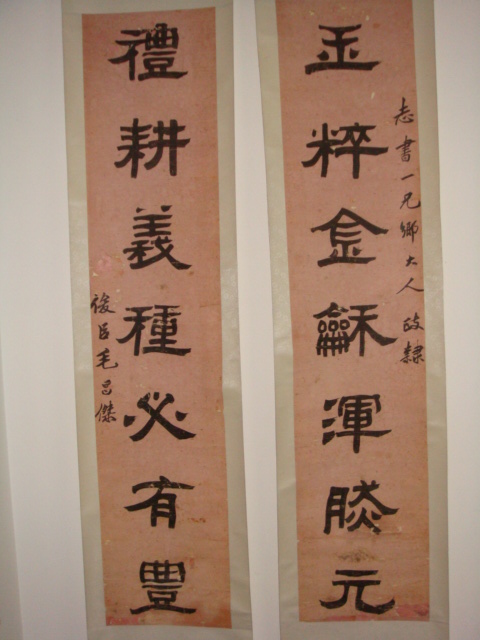 玉粹金龢渾然元
志書一兄鄉大人政隸
禮耕義種必有豐
俊臣毛昌傑